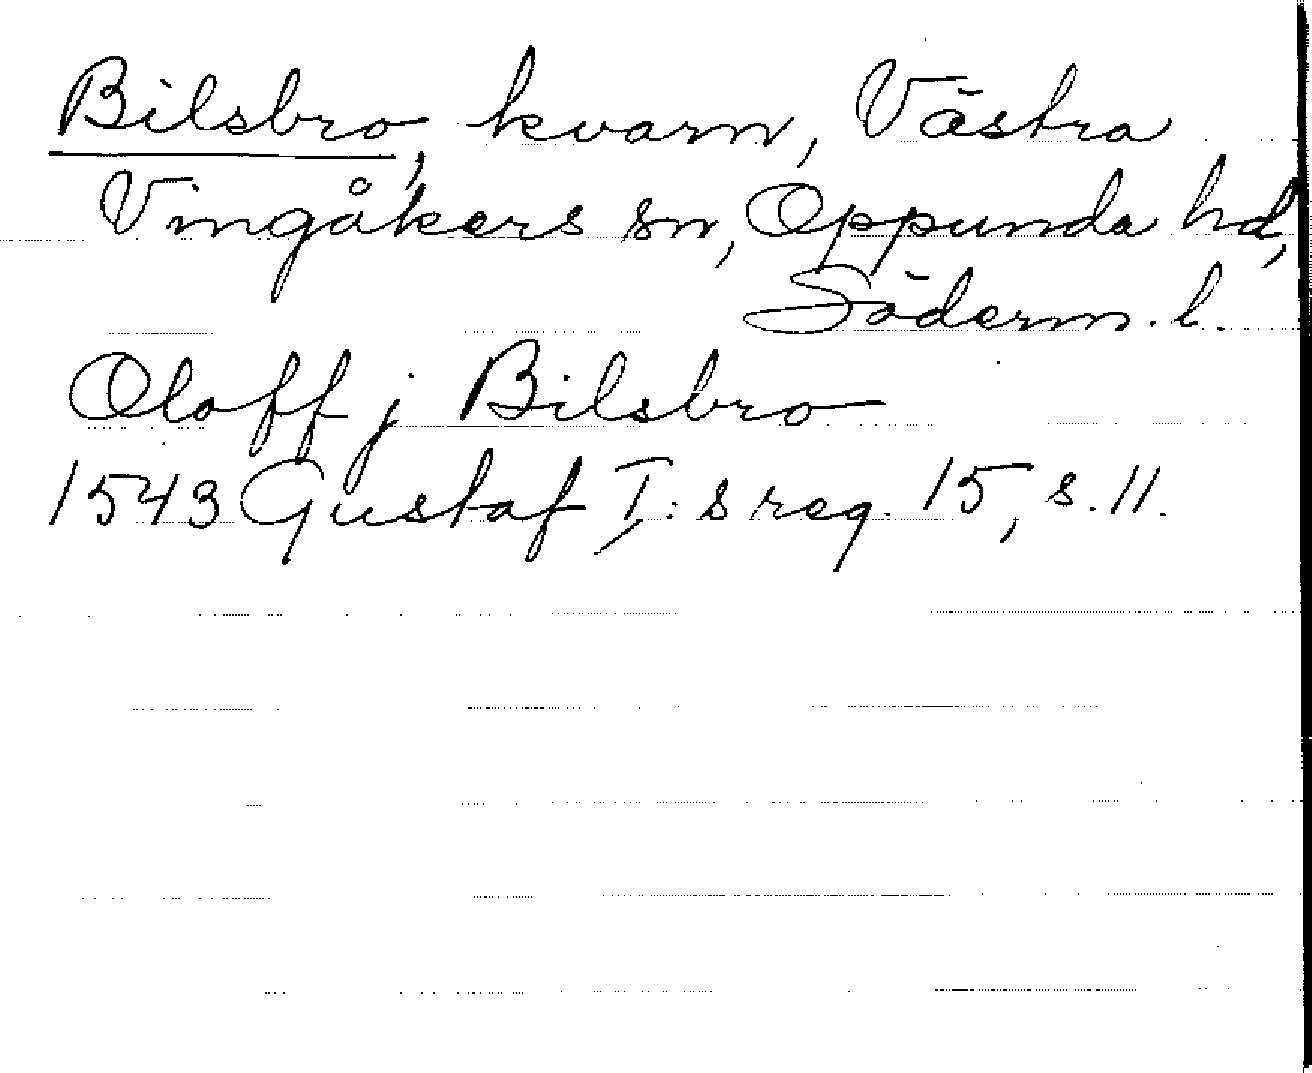 Bilsbro, kvarn, Västra
Vingåkers sn, Oppunda hd,
Söderm. l.
Oloff j Bilsbro
1543 Gustaf I:s reg. 15, s. 11.